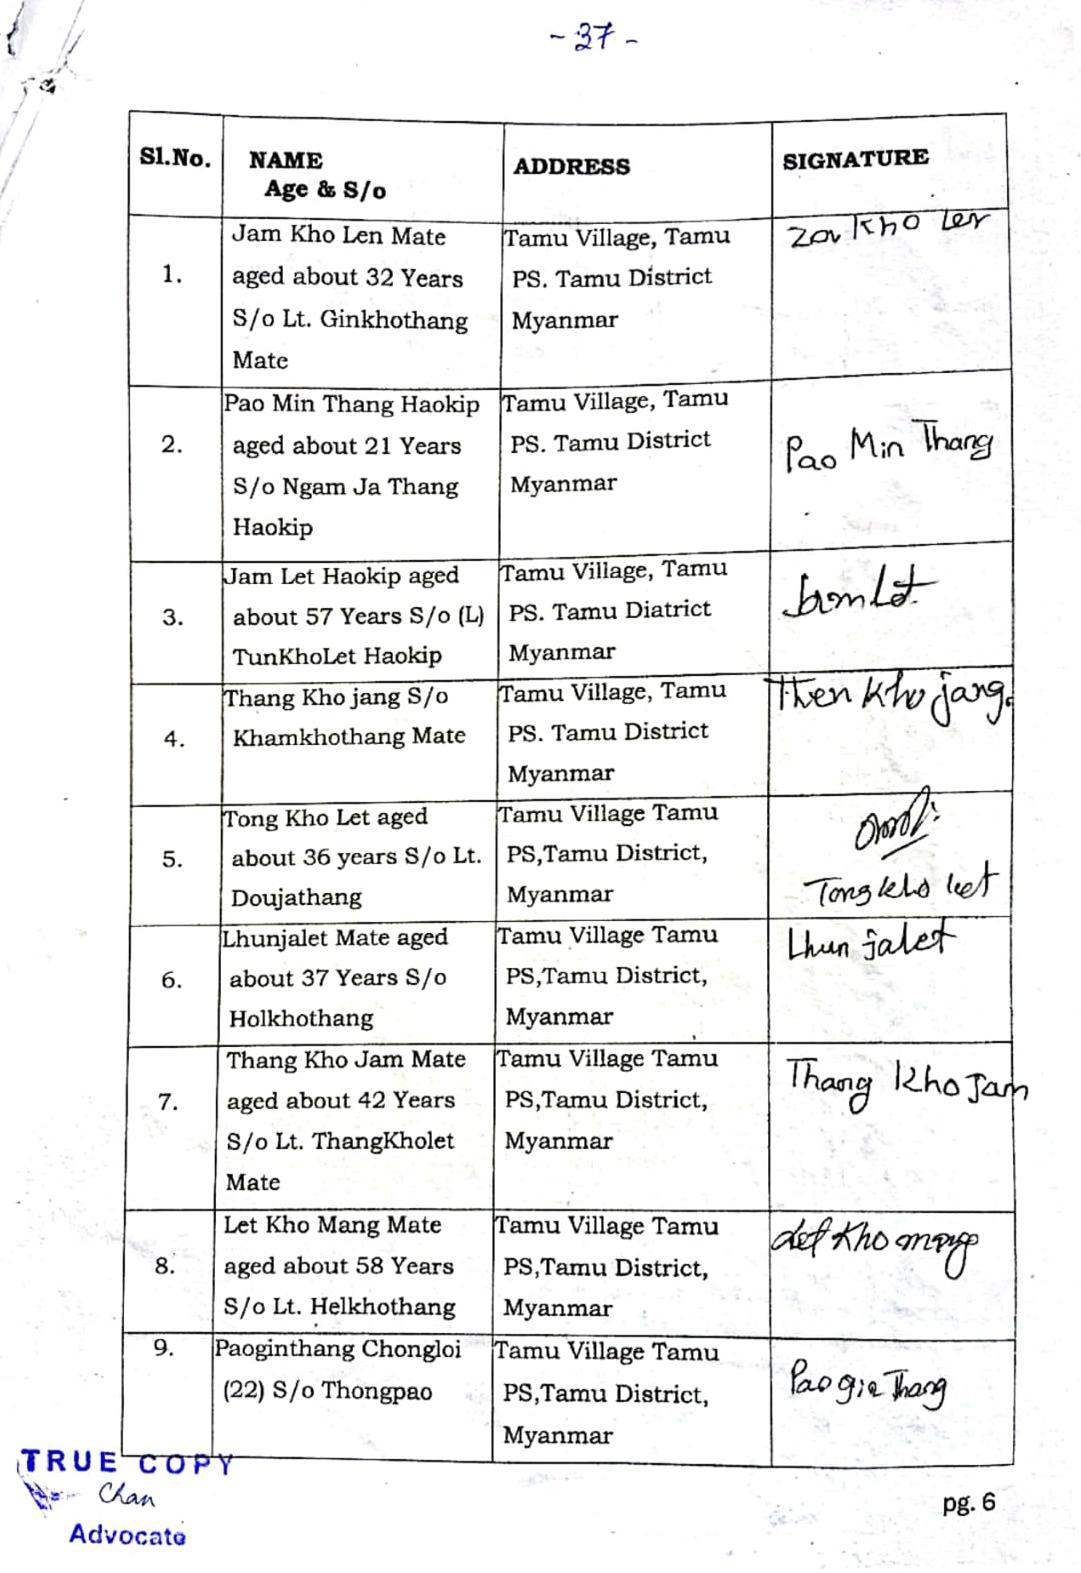 - 37 -
Sl.No.
NAME
Age & S/o
ADDRESS
SIGNATURE
1.
Jam Kho Len Mate
aged about 32 Years
S/o Lt. Ginkhothang
Mate
Tamu Village, Tamu
PS. Tamu District
Myanmar
Kho Len
2.
Pao Min Thang Haokip
aged about 21 Years
S/o Ngam Ja Thang
Haokip
Tamu Village, Tamu
PS. Tamu District
Myanmar
Pao Min Thang
3.
Jam Let Haokip aged
about 57 Years S/o (L)
TunKhoLet Haokip
Tamu Village, Tamu
PS. Tamu Diatrict
Myanmar
Jam Let
4.
Thang Kho jang S/o
Khamkhothang Mate
Tamu Village, Tamu
PS. Tamu District
Myanmar
Kho jang.
5.
Tong Kho Let aged
about 36 years S/o Lt.
Doujathang
Tamu Village Tamu
PS,Tamu District,
Myanmar
Tong kho let
6.
Lhunjalet Mate aged
about 37 Years S/o
Holkhothang
Tamu Village Tamu
PS,Tamu District,
Myanmar
Lhun jalet
7.
Thang Kho Jam Mate
aged about 42 Years
S/o Lt. ThangKholet
Mate
Tamu Village Tamu
PS,Tamu District,
Myanmar
Thang Kho Jam
8.
Let Kho Mang Mate
aged about 58 Years
S/o Lt. Helkhothang
Tamu Village Tamu
PS,Tamu District,
Myanmar
Let Kho mang
9.
Paoginthang Chongloi
(22) S/o Thongpao
Tamu Village Tamu
PS,Tamu District,
Myanmar
Pao gin Thang
TRUE COPY
Chan
Advocate
pg. 6